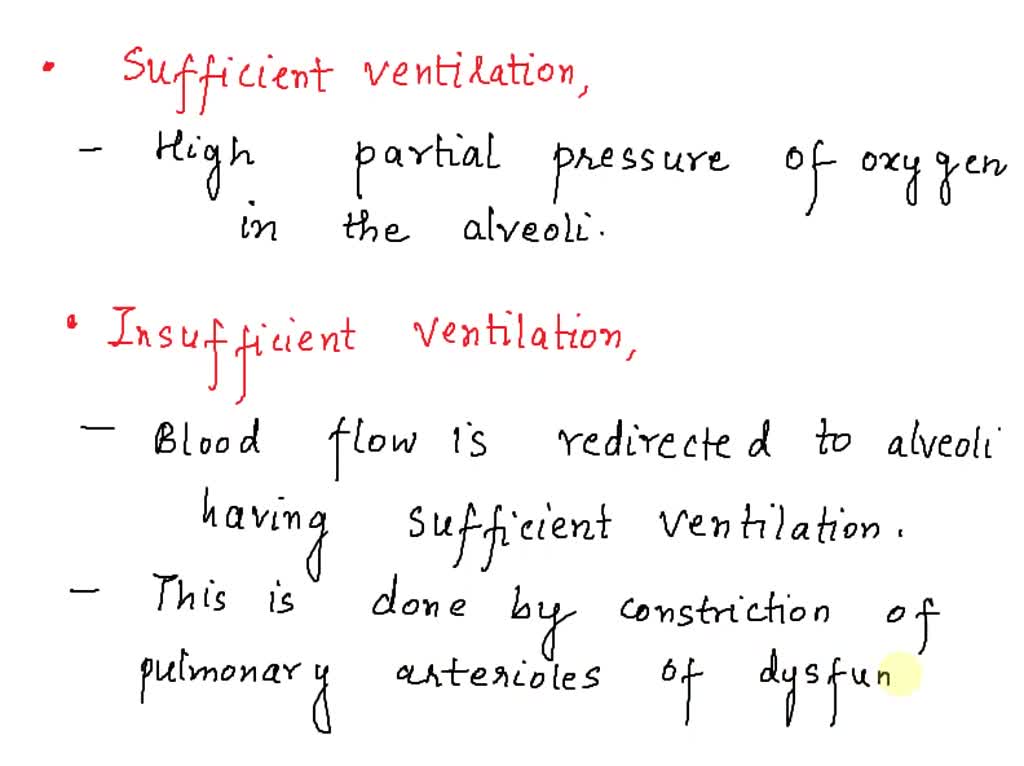 • Sufficient ventilation,
- High partial pressure of oxygen
in the alveoli.
• Insufficient ventilation,
- Blood flow is redirected to alveoli
having sufficient ventilation.
- This is done by constriction of
pulmonary arterioles of dysfun